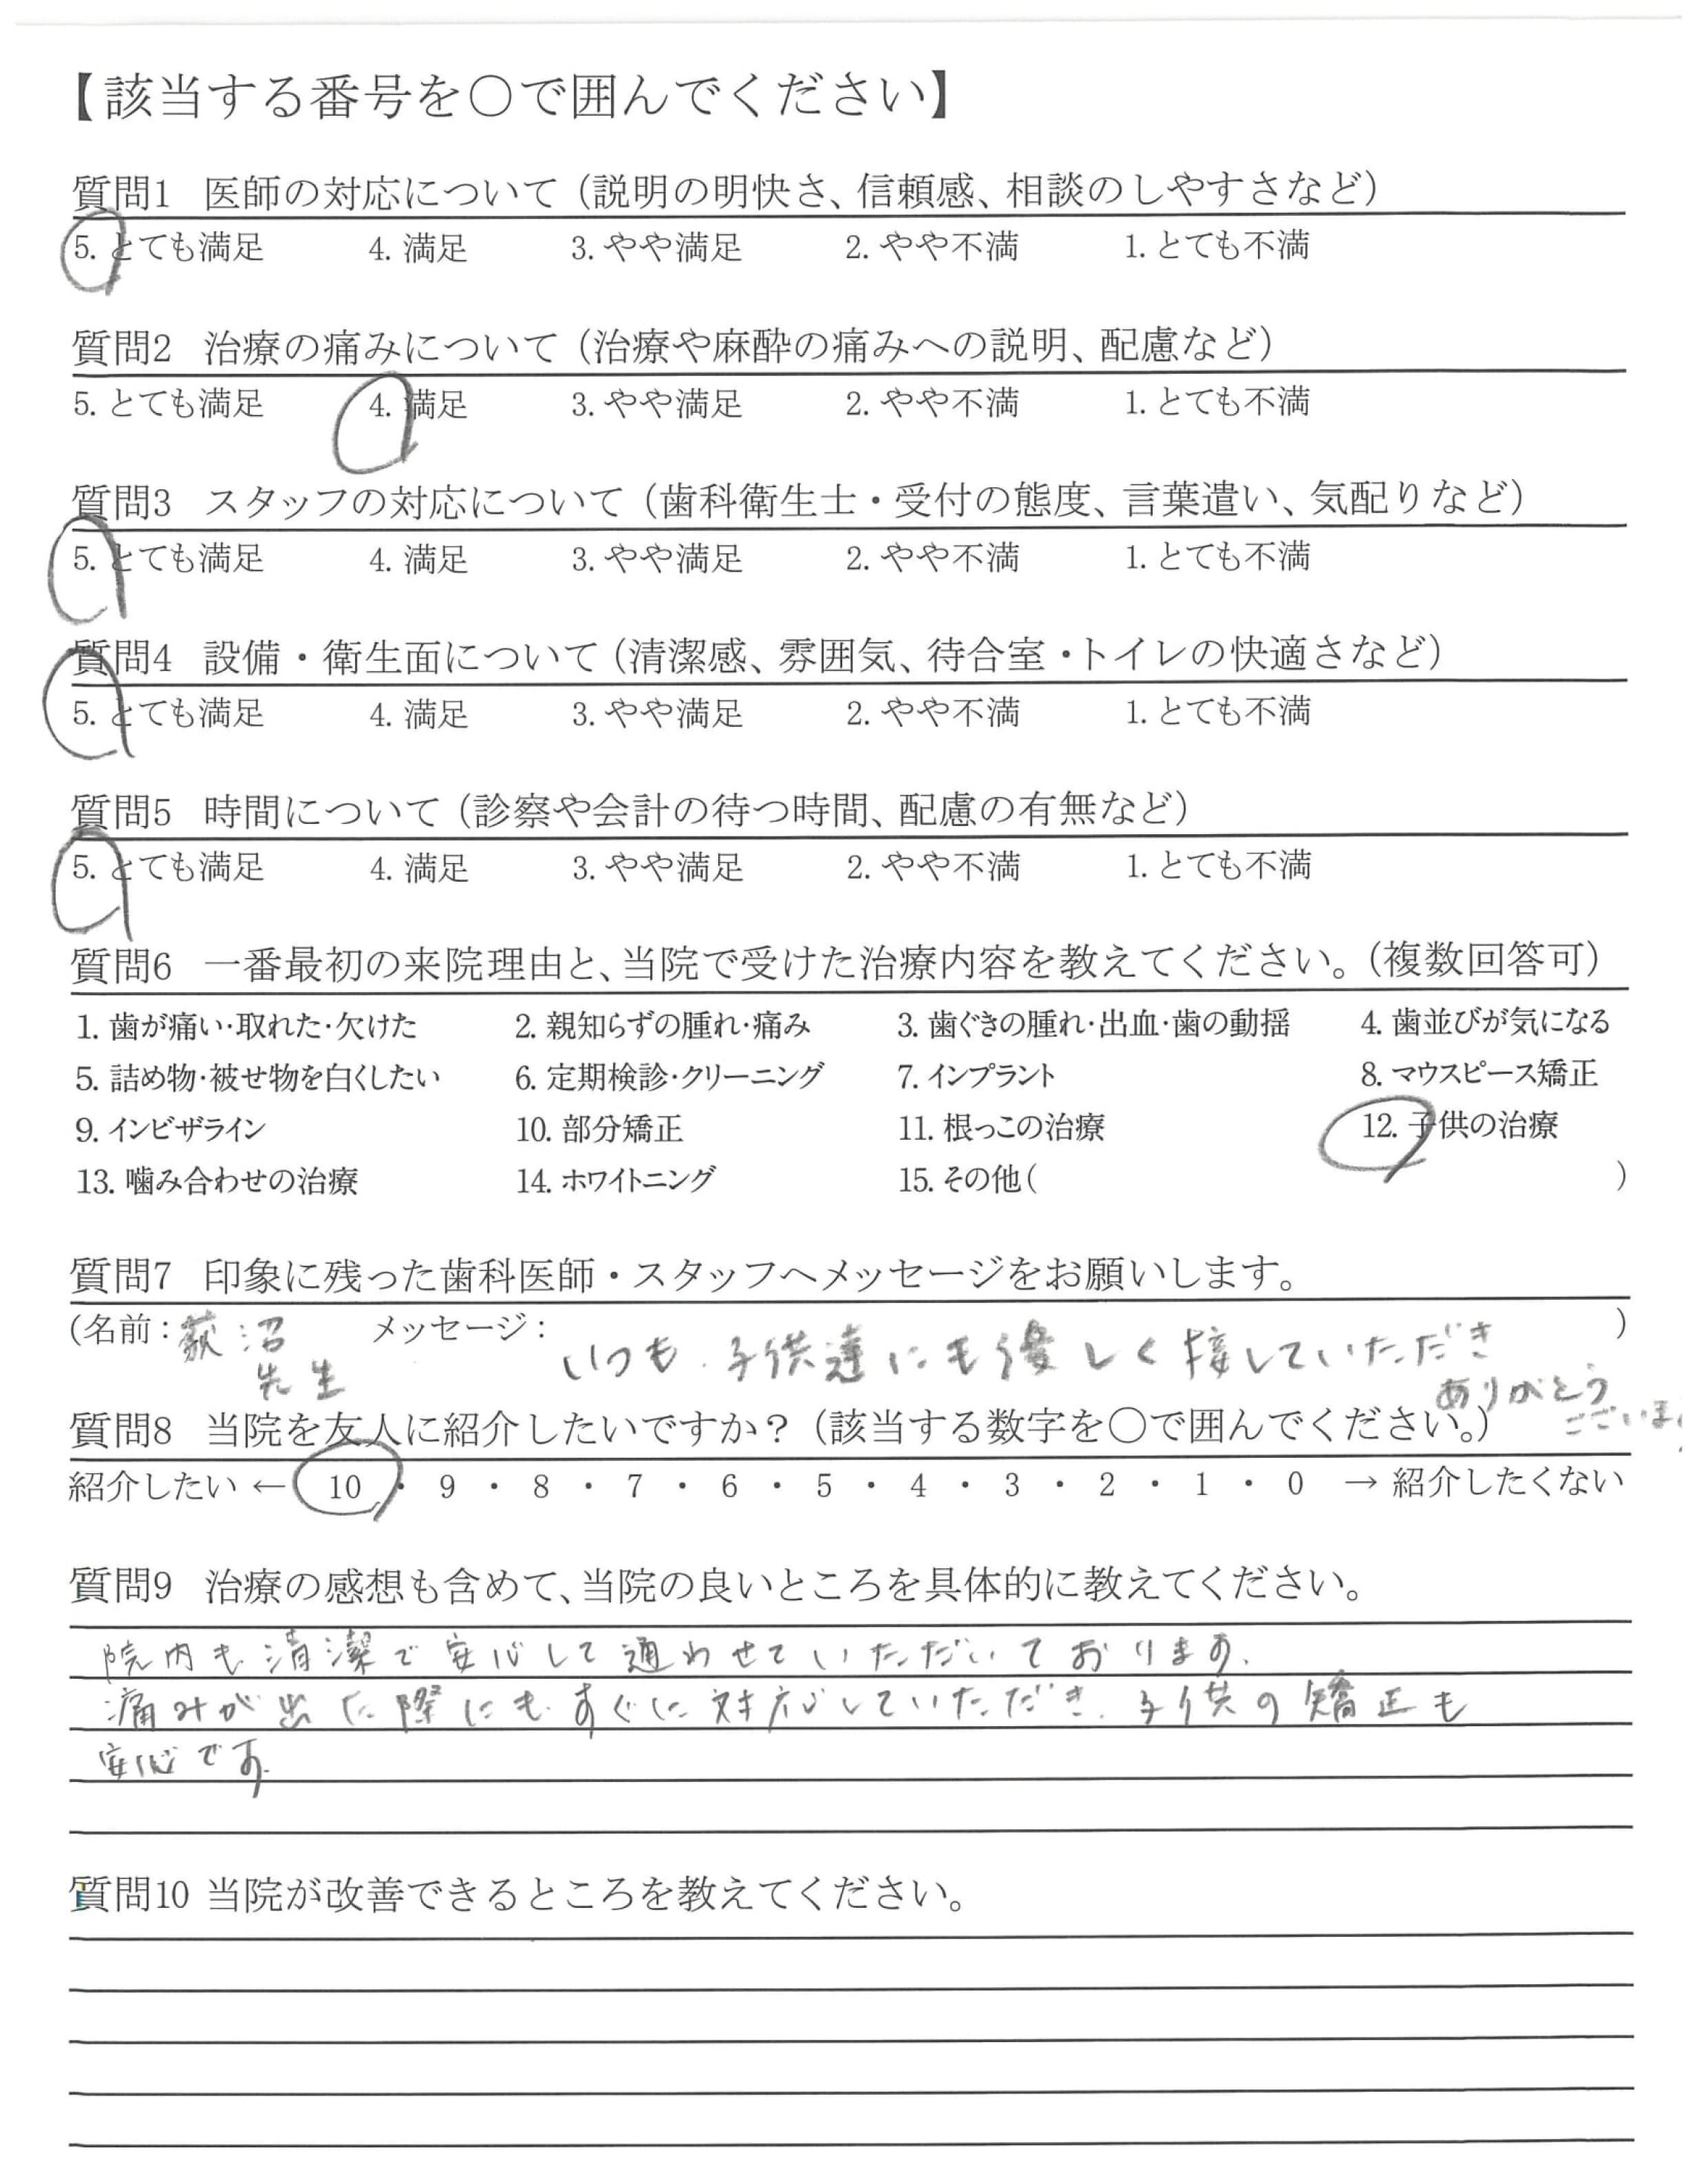 【該当する番号を〇で囲んでください】
質問1 医師の対応について（説明の明快さ、信頼感、相談のしやすさなど）
5. とても満足 4. 満足 3. やや満足 2. やや不満 1. とても不満
質問2 治療の痛みについて（治療や麻酔の痛みへの説明、配慮など）
5. とても満足 4. 満足 3. やや満足 2. やや不満 1. とても不満
質問3 スタッフの対応について（歯科衛生士・受付の態度、言葉遣い、気配りなど）
5. とても満足 4. 満足 3. やや満足 2. やや不満 1. とても不満
質問4 設備・衛生面について（清潔感、雰囲気、待合室・トイレの快適さなど）
5. とても満足 4. 満足 3. やや満足 2. やや不満 1. とても不満
質問5 時間について（診察や会計の待つ時間、配慮の有無など）
5. とても満足 4. 満足 3. やや満足 2. やや不満 1. とても不満
質問6 一番最初の来院理由と、当院で受けた治療内容を教えてください。（複数回答可）
1. 歯が痛い・取れた・欠けた 2. 親知らずの腫れ・痛み 3. 歯ぐきの腫れ・出血・歯の動揺 4. 歯並びが気になる
5. 詰め物・被せ物を白くしたい 6. 定期検診・クリーニング 7. インプラント 8. マウスピース矯正
9. インビザライン 10. 部分矯正 11. 根っこの治療 12. 子供の治療
13. 噛み合わせの治療 14. ホワイトニング 15. その他（ ）
質問7 印象に残った歯科医師・スタッフへメッセージをお願いします。
（名前：荻沼 メッセージ： いつも、子供達にも優しく接していただき ）
先生 ありがとう
ございま
質問8 当院を友人に紹介したいですか？（該当する数字を〇で囲んでください。）
紹介したい ← 10 ・ 9 ・ 8 ・ 7 ・ 6 ・ 5 ・ 4 ・ 3 ・ 2 ・ 1 ・ 0 → 紹介したくない
質問9 治療の感想も含めて、当院の良いところを具体的に教えてください。
院内も清潔で安心して通わせていただいております。
痛みが出た際にも、すぐに対応していただき、子供の矯正も
安心です。
質問10 当院が改善できるところを教えてください。